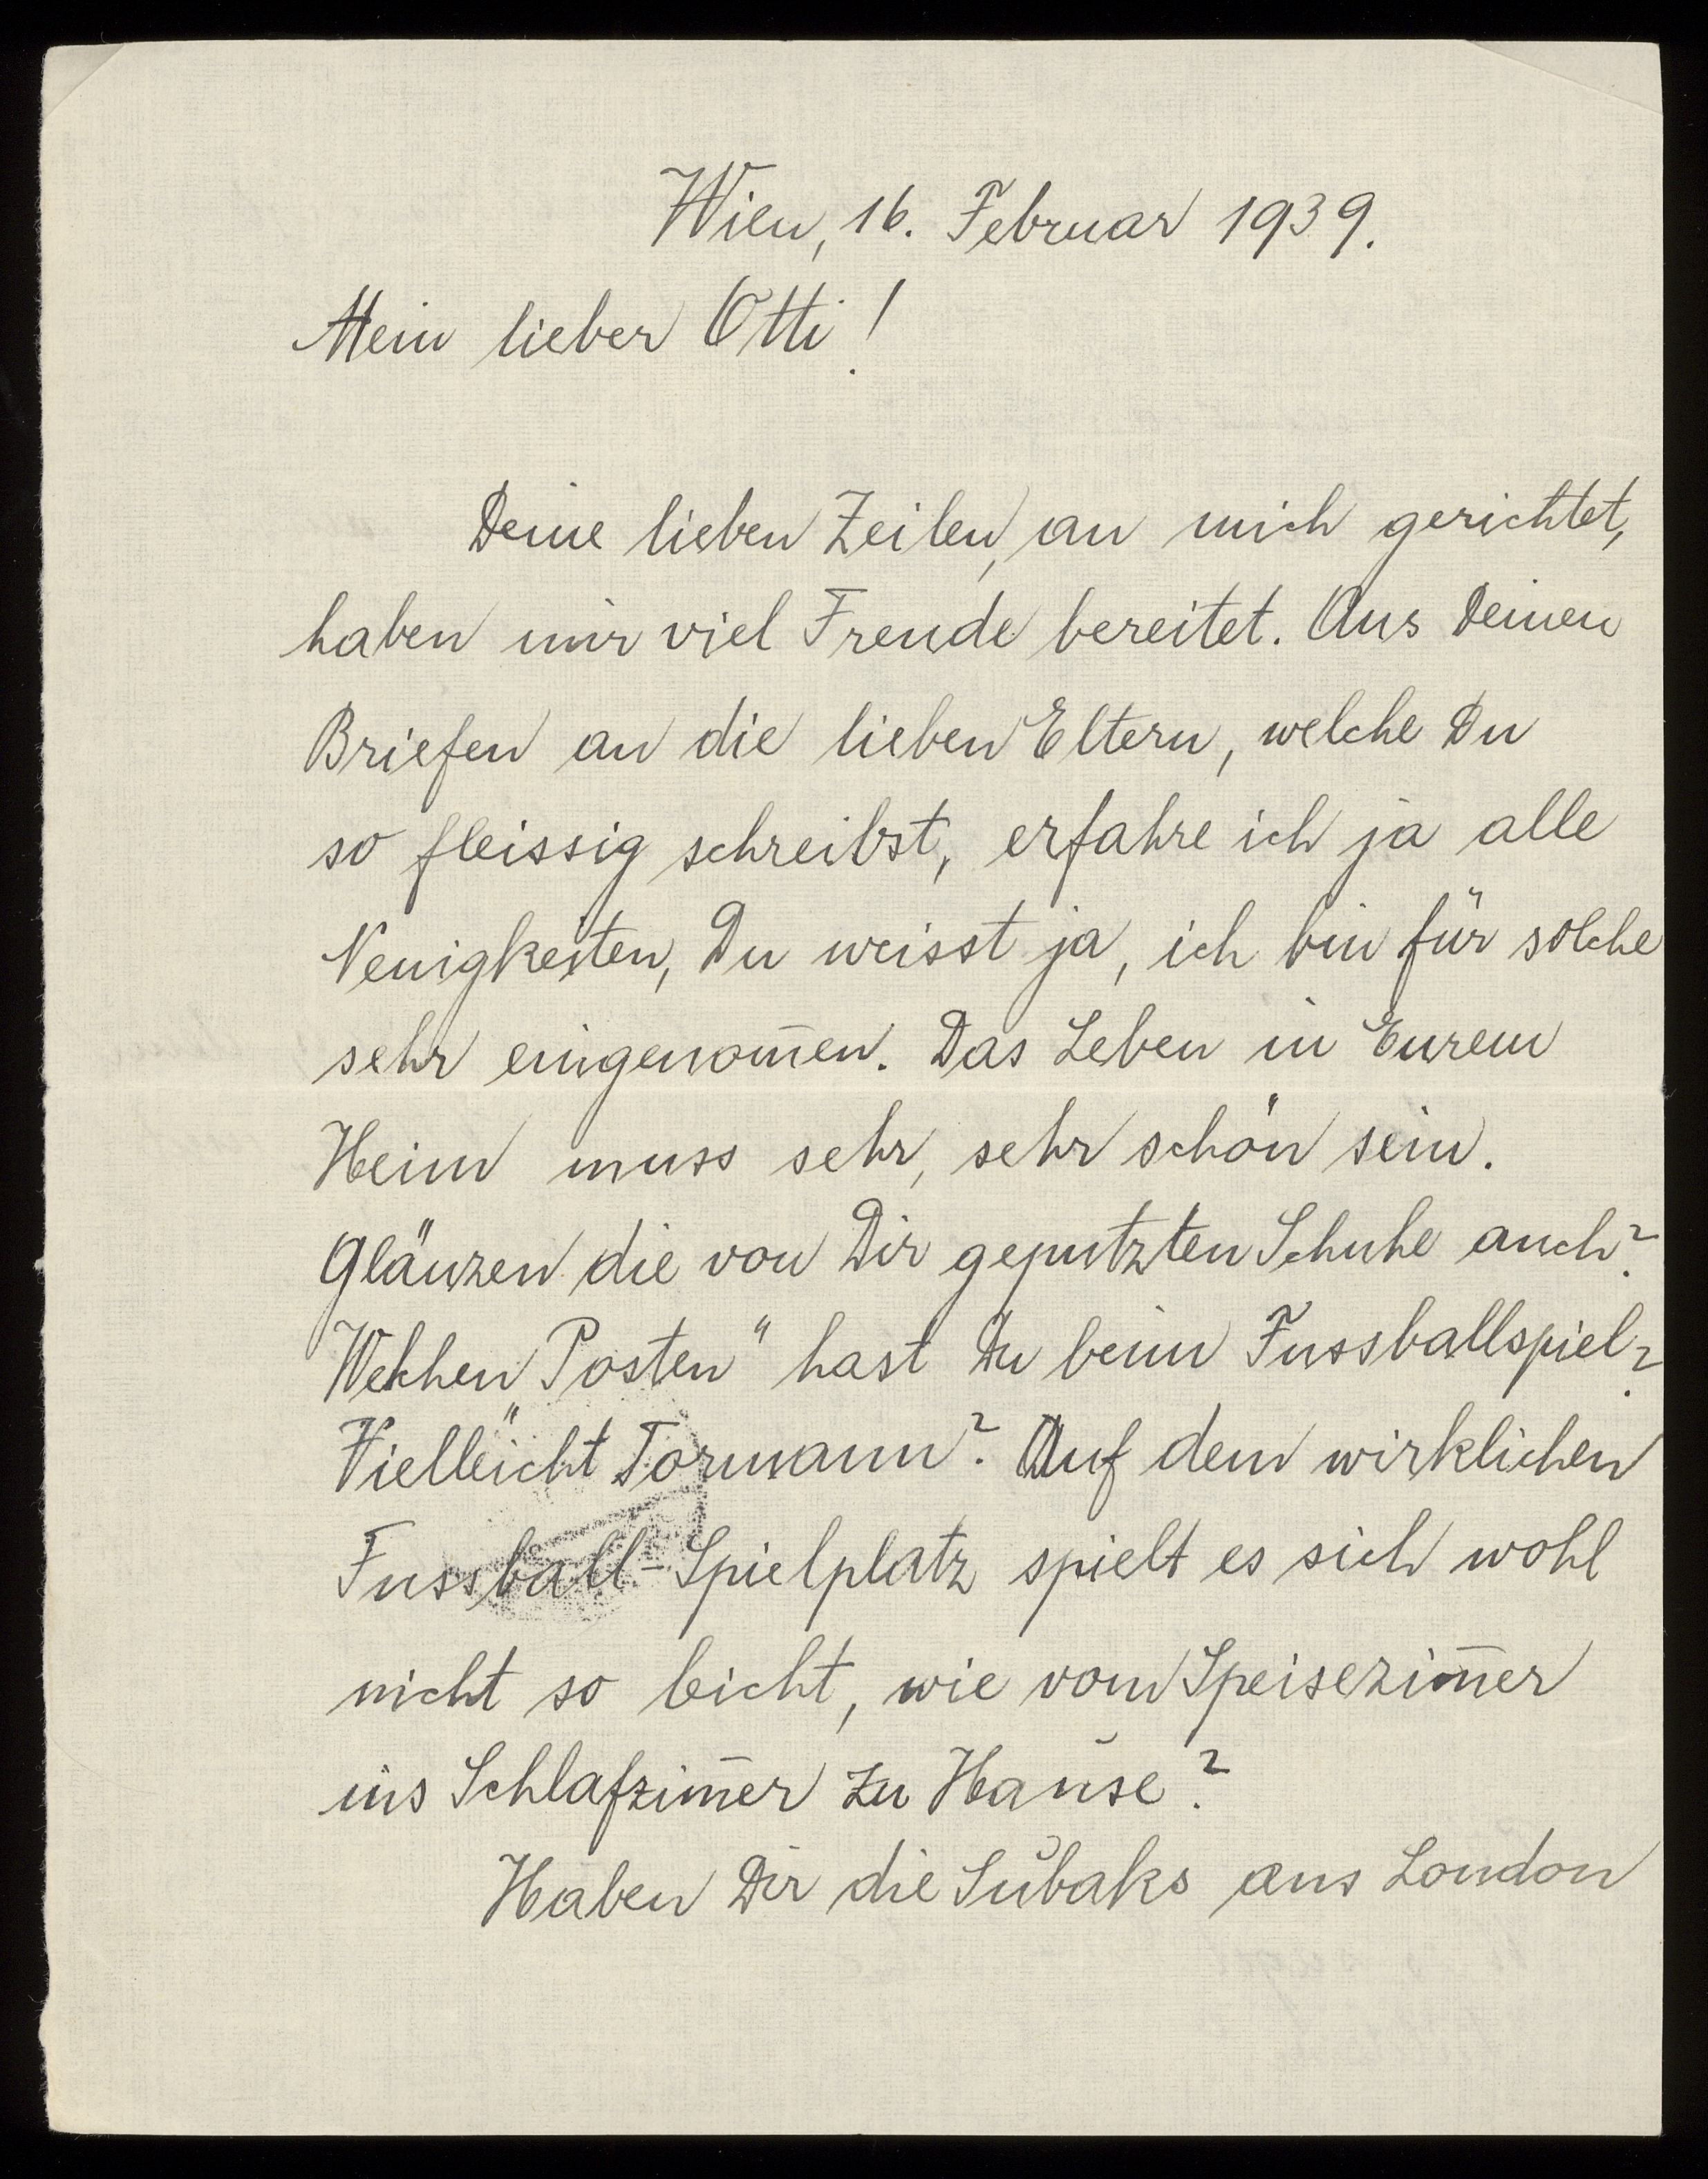 Wien, 16. Februar 1939.
Mein lieber Otti!
Deine lieben Zeilen, an mich gerichtet,
haben mir viel Freude bereitet. Aus Deinen
Briefen an die lieben Eltern, welche Du
so fleissig schreibst, erfahre ich ja alle
Neuigkeiten, Du weisst ja, ich bin für solche
sehr eingenom̅en. Das Leben in Eurem
Heim muss sehr, sehr schön sein.
Glänzen die von Dir geputzten Schuhe auch?
Welchen „Posten" hast Du beim Fussballspiel?
Vielleicht Tormann? Auf dem wirklichen
Fussball-Spielplatz spielt es sich wohl
nicht so leicht, wie vom Speisezim̅er
ins Schlafzim̅er zu Hause?
Haben Dir die Subaks aus London